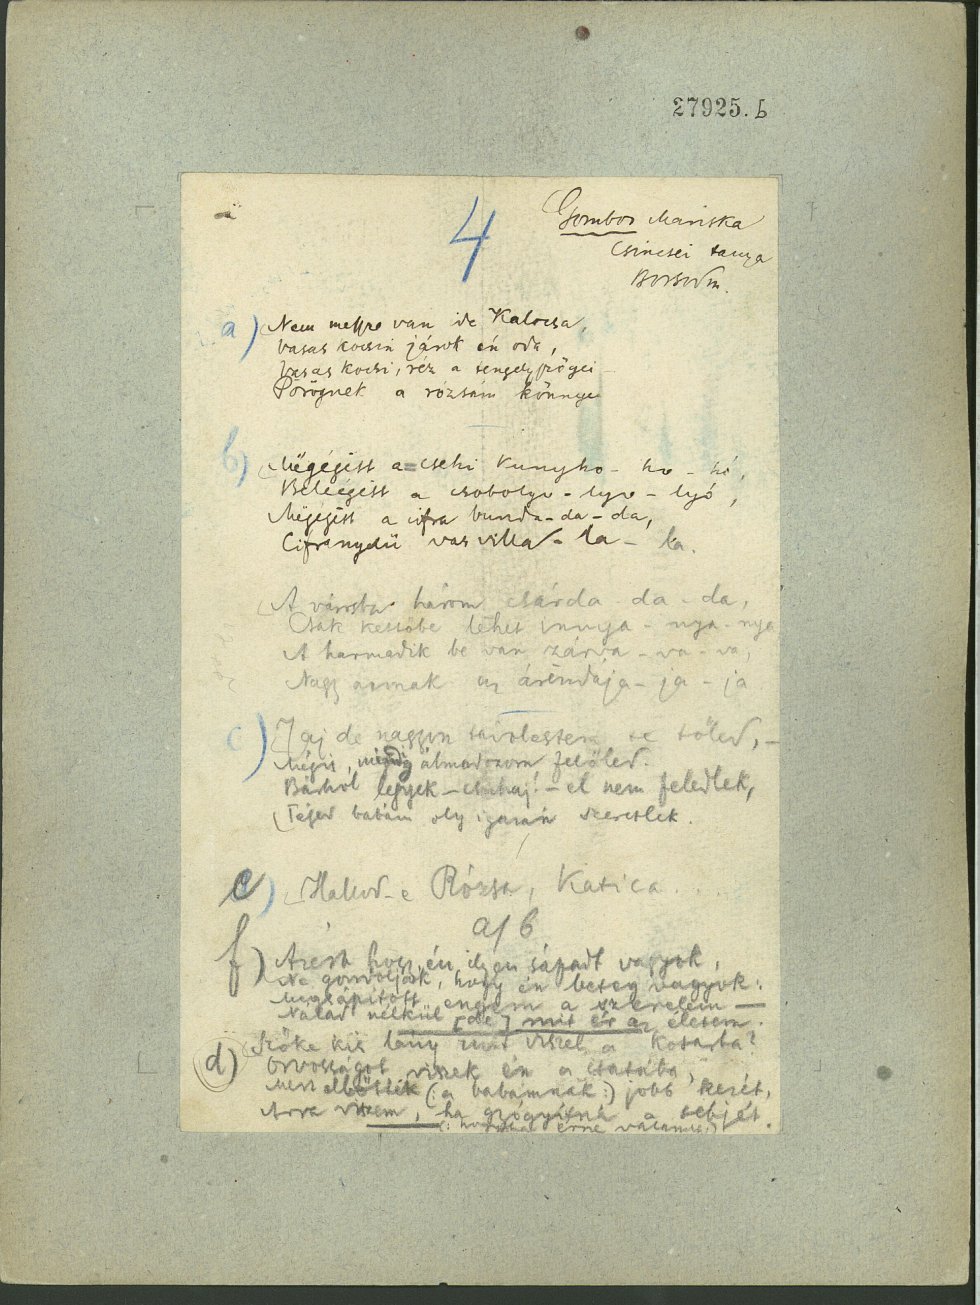 27925. b
4
Gombos Mariska
Csincsei tanya
Borsodm.
a) Nem messze van ide Kalocsa,
Vasas kocsin járok én oda,
Vasas kocsi, réz a
Pörögnek a rózsám könnyei
b) Mëgégëtt a csehi kunyho - ho - hó,
Beleégëtt a csobolyo - lyo - lyó,
Mëgégëtt a cifra bunda - da - da,
Cifranyelü vasvilla - la - la.
A városba három csárda - da - da,
Csak kettőbe lehet innya - nya - nya
A harmadik be van zárva - va - va,
Nagy annak az árëndája - ja - ja
c) Jaj de nagyon távolestem te tőled, -
Mégis, mindig álmodozom felőled.
Bárhol legyek - chuhaj! - el nem feledlek,
Téged babám oly igazán szeretlek.
e) Hallod-e Rózsa, Katica . . .
a/b
f) Azért hogy én ilyen sápadt vagyok,
Ne gondoljátok, hogy én beteg vagyok:
Megsápított engem a szerelem —
Nálad nélkül [de] mit ér az életem.
d) Szőke kis lány mit viszel a kosárba?
Orvosságot viszek én a csatába,
Mert ellőtték (: a babámnak :) jobb kezét,
Arra viszem, ha gyógyítná a sebjét.